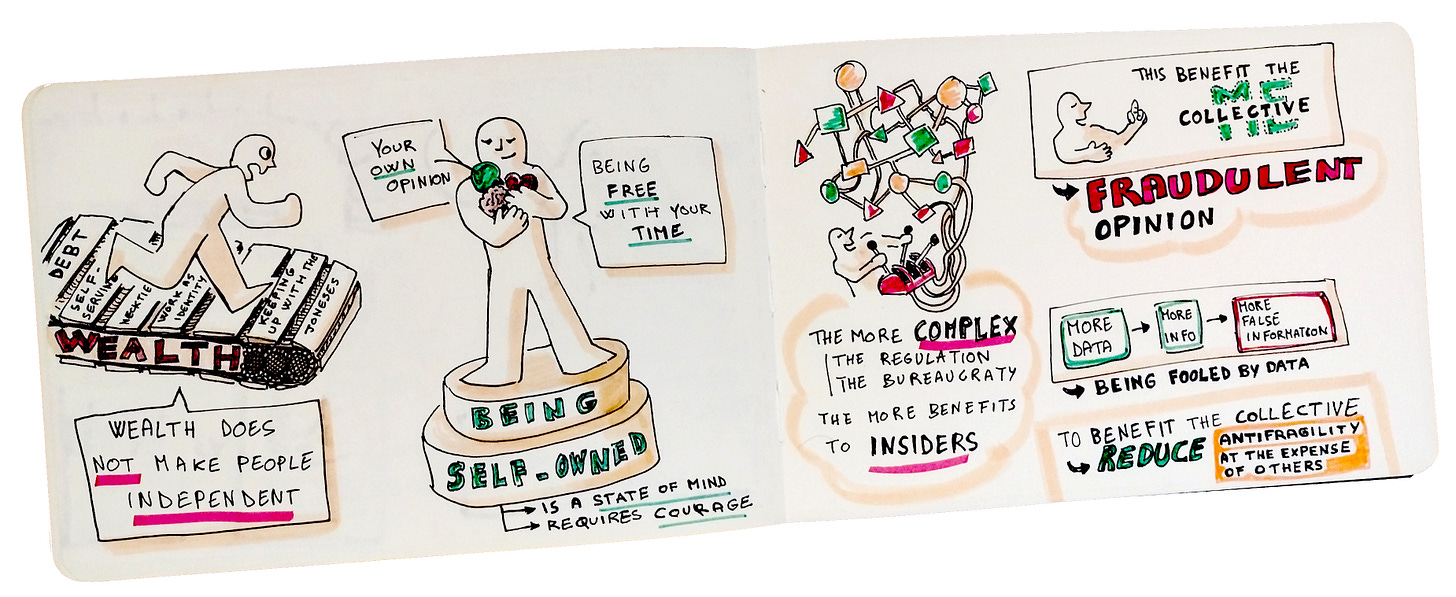 DEBT
SELF-
SERVING
NECKTIE
WORK AS
IDENTITY
KEEPING
UP WITH THE
JONESES
WEALTH
WEALTH DOES
NOT MAKE PEOPLE
INDEPENDENT
YOUR
OWN
OPINION
BEING
FREE
WITH YOUR
TIME
BEING
SELF-OWNED
IS A STATE OF MIND
REQUIRES COURAGE
THE MORE COMPLEX
THE REGULATION
THE BUREAUCRATY
THE MORE BENEFITS
TO INSIDERS
THIS BENEFIT THE
ME
COLLECTIVE
FRAUDULENT
OPINION
MORE
DATA
MORE
INFO
MORE
FALSE
INFORMATION
BEING FOOLED BY DATA
TO BENEFIT THE COLLECTIVE
REDUCE
ANTIFRAGILITY
AT THE EXPENSE
OF OTHERS